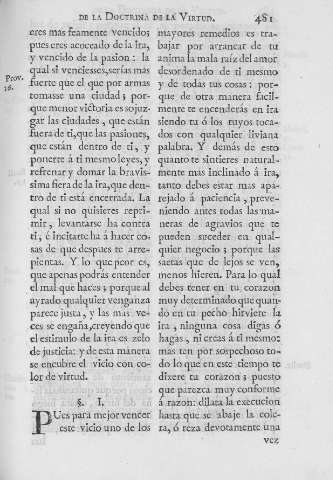 DE LA DOCTRINA DE LA VIRTUD. 481
eres mas feamente vencido;
pues eres acoceado de la ira,
y vencido de la pasion: la
qual si venciesses, serías mas
Prov. 16.
fuerte que el que por armas
tomasse una ciudad; por-
que menor victoria es sojuz-
gar las ciudades, que están
fuera de ti, que las pasiones,
que están dentro de ti, y
ponerte á ti mesmo leyes, y
refrenar y domar la bravis-
sima fiera de la ira, que den-
tro de ti está encerrada. La
qual si no quisieres repri-
mir, levantarse ha contra
ti, é incitarte ha á hacer co-
sas de que despues te arre-
pientas. Y lo que peor es,
que apenas podrás entender
el mal que haces; porque al
ayrado qualquier venganza
parece justa, y las mas ve-
ces se engaña, creyendo que
el estimulo de la ira es zelo
de justicia: y de esta manera
se encubre el vicio con co-
lor de virtud.
§. I.
PUes para mejor vencer
este vicio uno de los
mayores remedios es tra-
bajar por arrancar de tu
anima la mala raíz del amor
desordenado de ti mesmo
y de todas tus cosas: por-
que de otra manera facil-
mente te encenderás en ira
siendo tu ó los tuyos toca-
dos con qualquier liviana
palabra. Y demás de esto
quanto te sintieres natural-
mente mas inclinado á ira,
tanto debes estar mas apa-
rejado á paciencia, preve-
niendo antes todas las ma-
neras de agravios que te
pueden suceder en qual-
quier negocio; porque las
saetas que de lejos se ven,
menos hieren. Para lo qual
debes tener en tu corazon
muy determinado que quan-
do en tu pecho hirviere la
ira, ninguna cosa digas ó
hagas, ni creas á ti mesmo:
mas ten por sospechoso to-
do lo que en este tiempo te
dixere tu corazon; puesto
que parezca muy conforme
á razon: dilata la execucion
hasta que se abaje la cole-
ra, ó reza devotamente una
vez